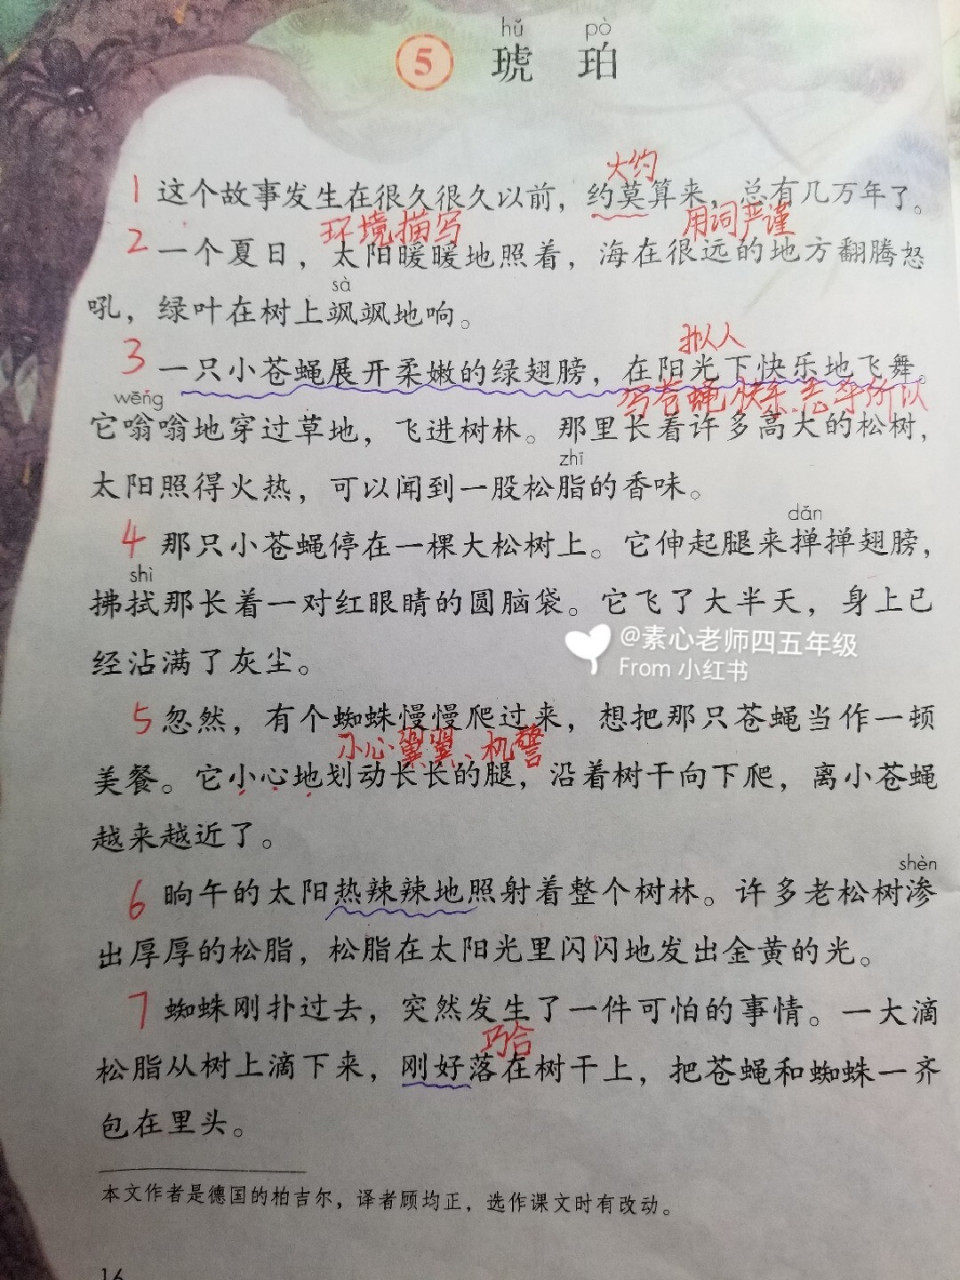 hǔ pò
5 琥珀
大约
1 这个故事发生在很久很久以前，约莫算来，总有几万年了。
环境描写 用词严谨
2 一个夏日，太阳暖暖地照着，海在很远的地方翻腾怒
sà
吼，绿叶在树上飒飒地响。
拟人
3 一只小苍蝇展开柔嫩的绿翅膀，在阳光下快乐地飞舞。
wēng 写苍蝇快乐.忘乎所以
它嗡嗡地穿过草地，飞进树林。那里长着许多高大的松树，
zhī
太阳照得火热，可以闻到一股松脂的香味。
dǎn
4 那只小苍蝇停在一棵大松树上。它伸起腿来掸掸翅膀，
shì
拂拭那长着一对红眼睛的圆脑袋。它飞了大半天，身上已
@素心老师四五年级
From 小红书
经沾满了灰尘。
5 忽然，有个蜘蛛慢慢爬过来，想把那只苍蝇当作一顿
小心翼翼、机警
美餐。它小心地划动长长的腿，沿着树干向下爬，离小苍蝇
越来越近了。
shèn
6 晌午的太阳热辣辣地照射着整个树林。许多老松树渗
出厚厚的松脂，松脂在太阳光里闪闪地发出金黄的光。
7 蜘蛛刚扑过去，突然发生了一件可怕的事情。一大滴
巧合
松脂从树上滴下来，刚好落在树干上，把苍蝇和蜘蛛一齐
包在里头。
本文作者是德国的柏吉尔，译者顾均正，选作课文时有改动。
16